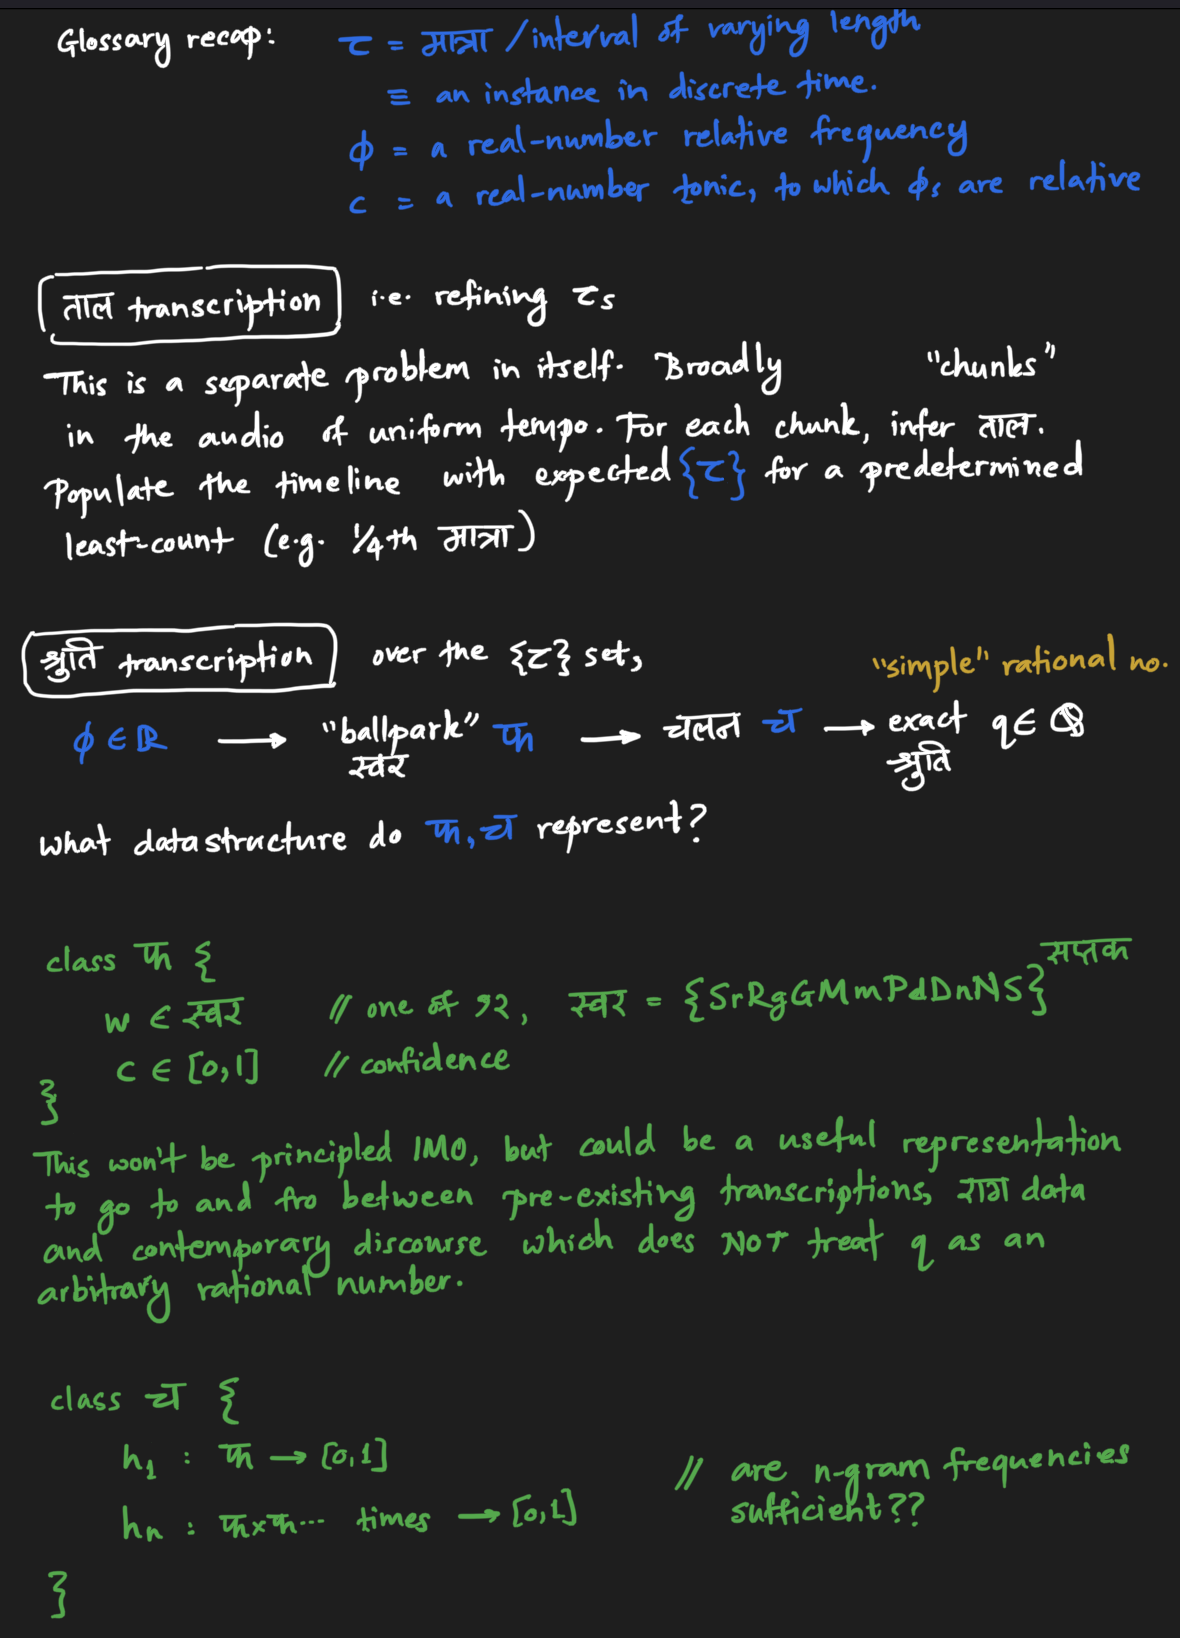 Glossary recap: τ = मात्रा / interval of varying length
≡ an instance in discrete time.
φ = a real-number relative frequency
c = a real-number tonic, to which φs are relative
ताल transcription i.e. refining τs
This is a separate problem in itself. Broadly "chunks"
in the audio of uniform tempo. For each chunk, infer ताल.
Populate the timeline with expected {τ} for a predetermined
least-count (e.g. 1/4th मात्रा)
श्रुति transcription over the {τ} set,
"simple" rational no.
φ ∈ ℝ → "ballpark" फ → चलन च → exact q ∈ ℚ
स्वर श्रुति
What datastructure do फ, च represent?
class फ {
w ∈ स्वर // one of १२, स्वर = {SrRgGMmPdDnNS}^सप्तक
c ∈ [0,1] // confidence
}
This won't be principled IMO, but could be a useful representation
to go to and fro between pre-existing transcriptions, राग data
and contemporary discourse which does NOT treat q as an
arbitrary rational number.
class च {
h₁ : फ → [0,1] // are n-gram frequencies
sufficient??
hₙ : फ×फ... times → [0,1]
}